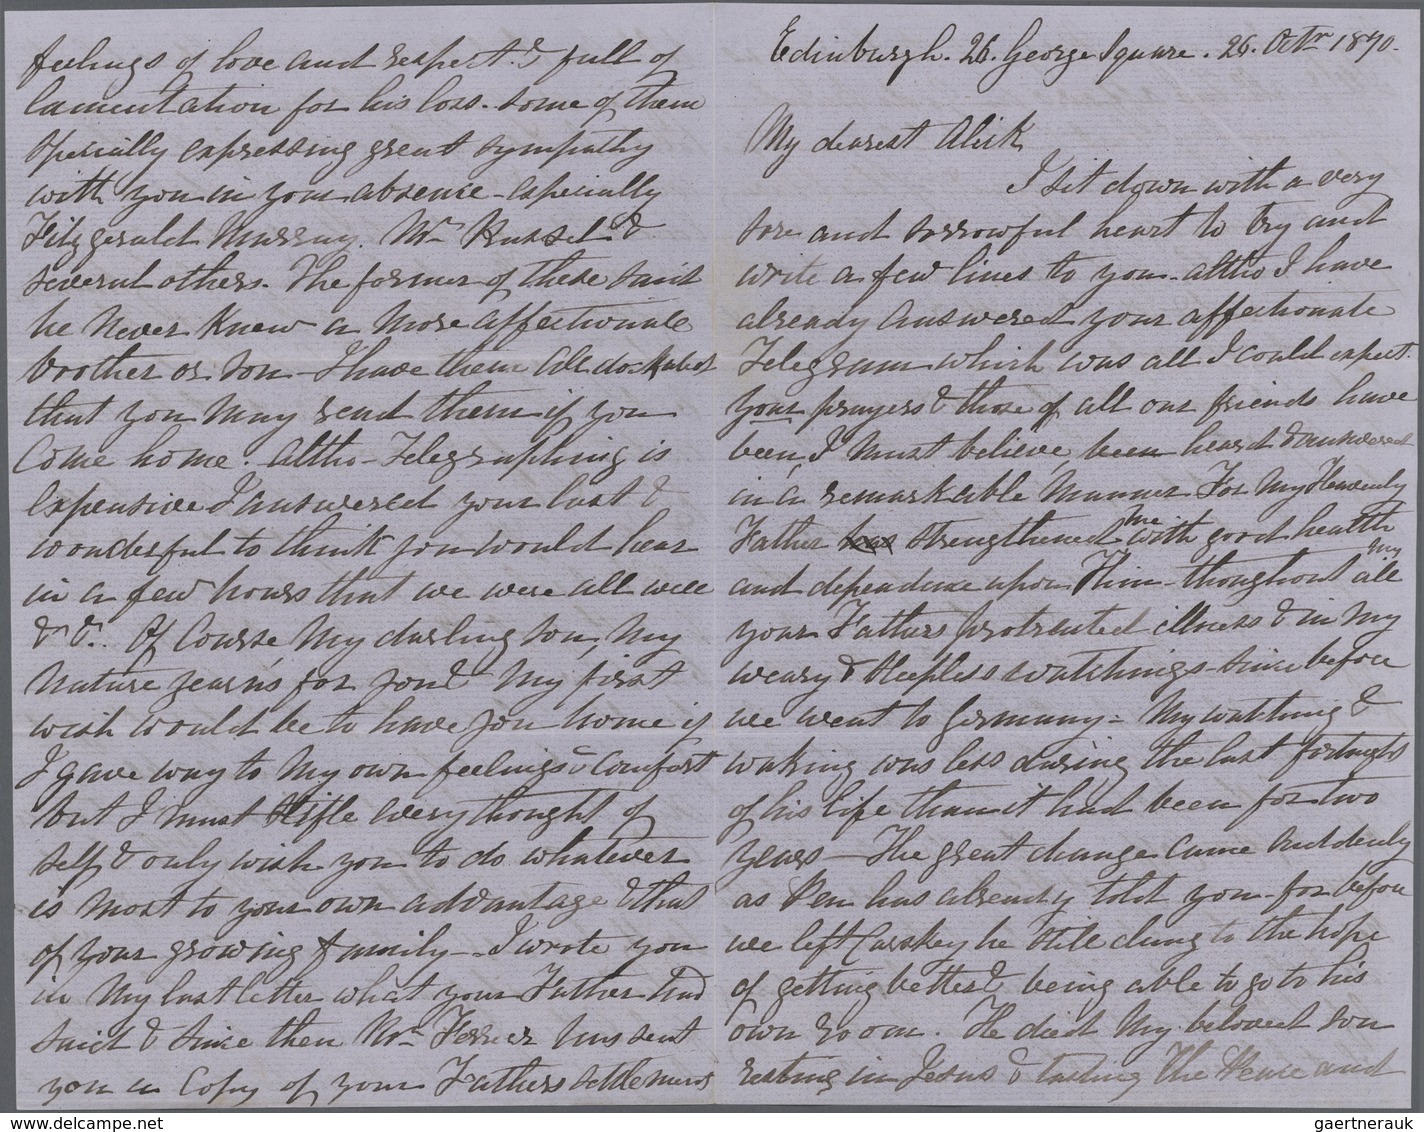 Edinburgh. 26. George Square. 26. Octr 1870.
My dearest Alick
I sit down with a very
sore and sorrowful heart to try and
write a few lines to you - altho I have
already answered your affectionate
Telegram which was all I could expect.
Your prayers & those of all our friends have
been, I must believe, been heard & answered
in a remarkable manner For My Heavenly
Father has strengthened me with good health
and dependence upon Him - thoughout all my
your Fathers protracted illness & in my
weary & sleepless watchings - since before
we went to Germany - My watching &
waking was less during the last fortnight
of his life than it had been for two
years - The great change came suddenly
as Pen has already told you - for before
we left Carskey he still clung to the hope
of getting better & being able to go to his
own room. He died My beloved son
resting in Jesus & tasting The Peace and
feelings of love and respect. & full of
lamentation for his loss. some of them
specially expressing great sympathy
with you in your absence - especially
Fitzgerald Murray. Mr Russel &
several others. The former of these said
he Never Knew a More affectionate
brother or son - I have them all
that you May read them if you
Come home. Altho - Telegraphing is
expensive I answered your last &
wonderful to think you would hear
in a few hours that we were all well
&c &c. Of Course My darling son, My
Nature yearns for you & My first
wish would be to have you home if
I gave way to My own feelings & comfort
but I must stifle every thought of
self & only wish you to do whatever
is Most to your own advantage & that
of your growing family - I wrote you
in My last letter what your Father had
said & since then Mr Ferrier has sent
you a Copy of your Fathers settlements
gaertnerauk